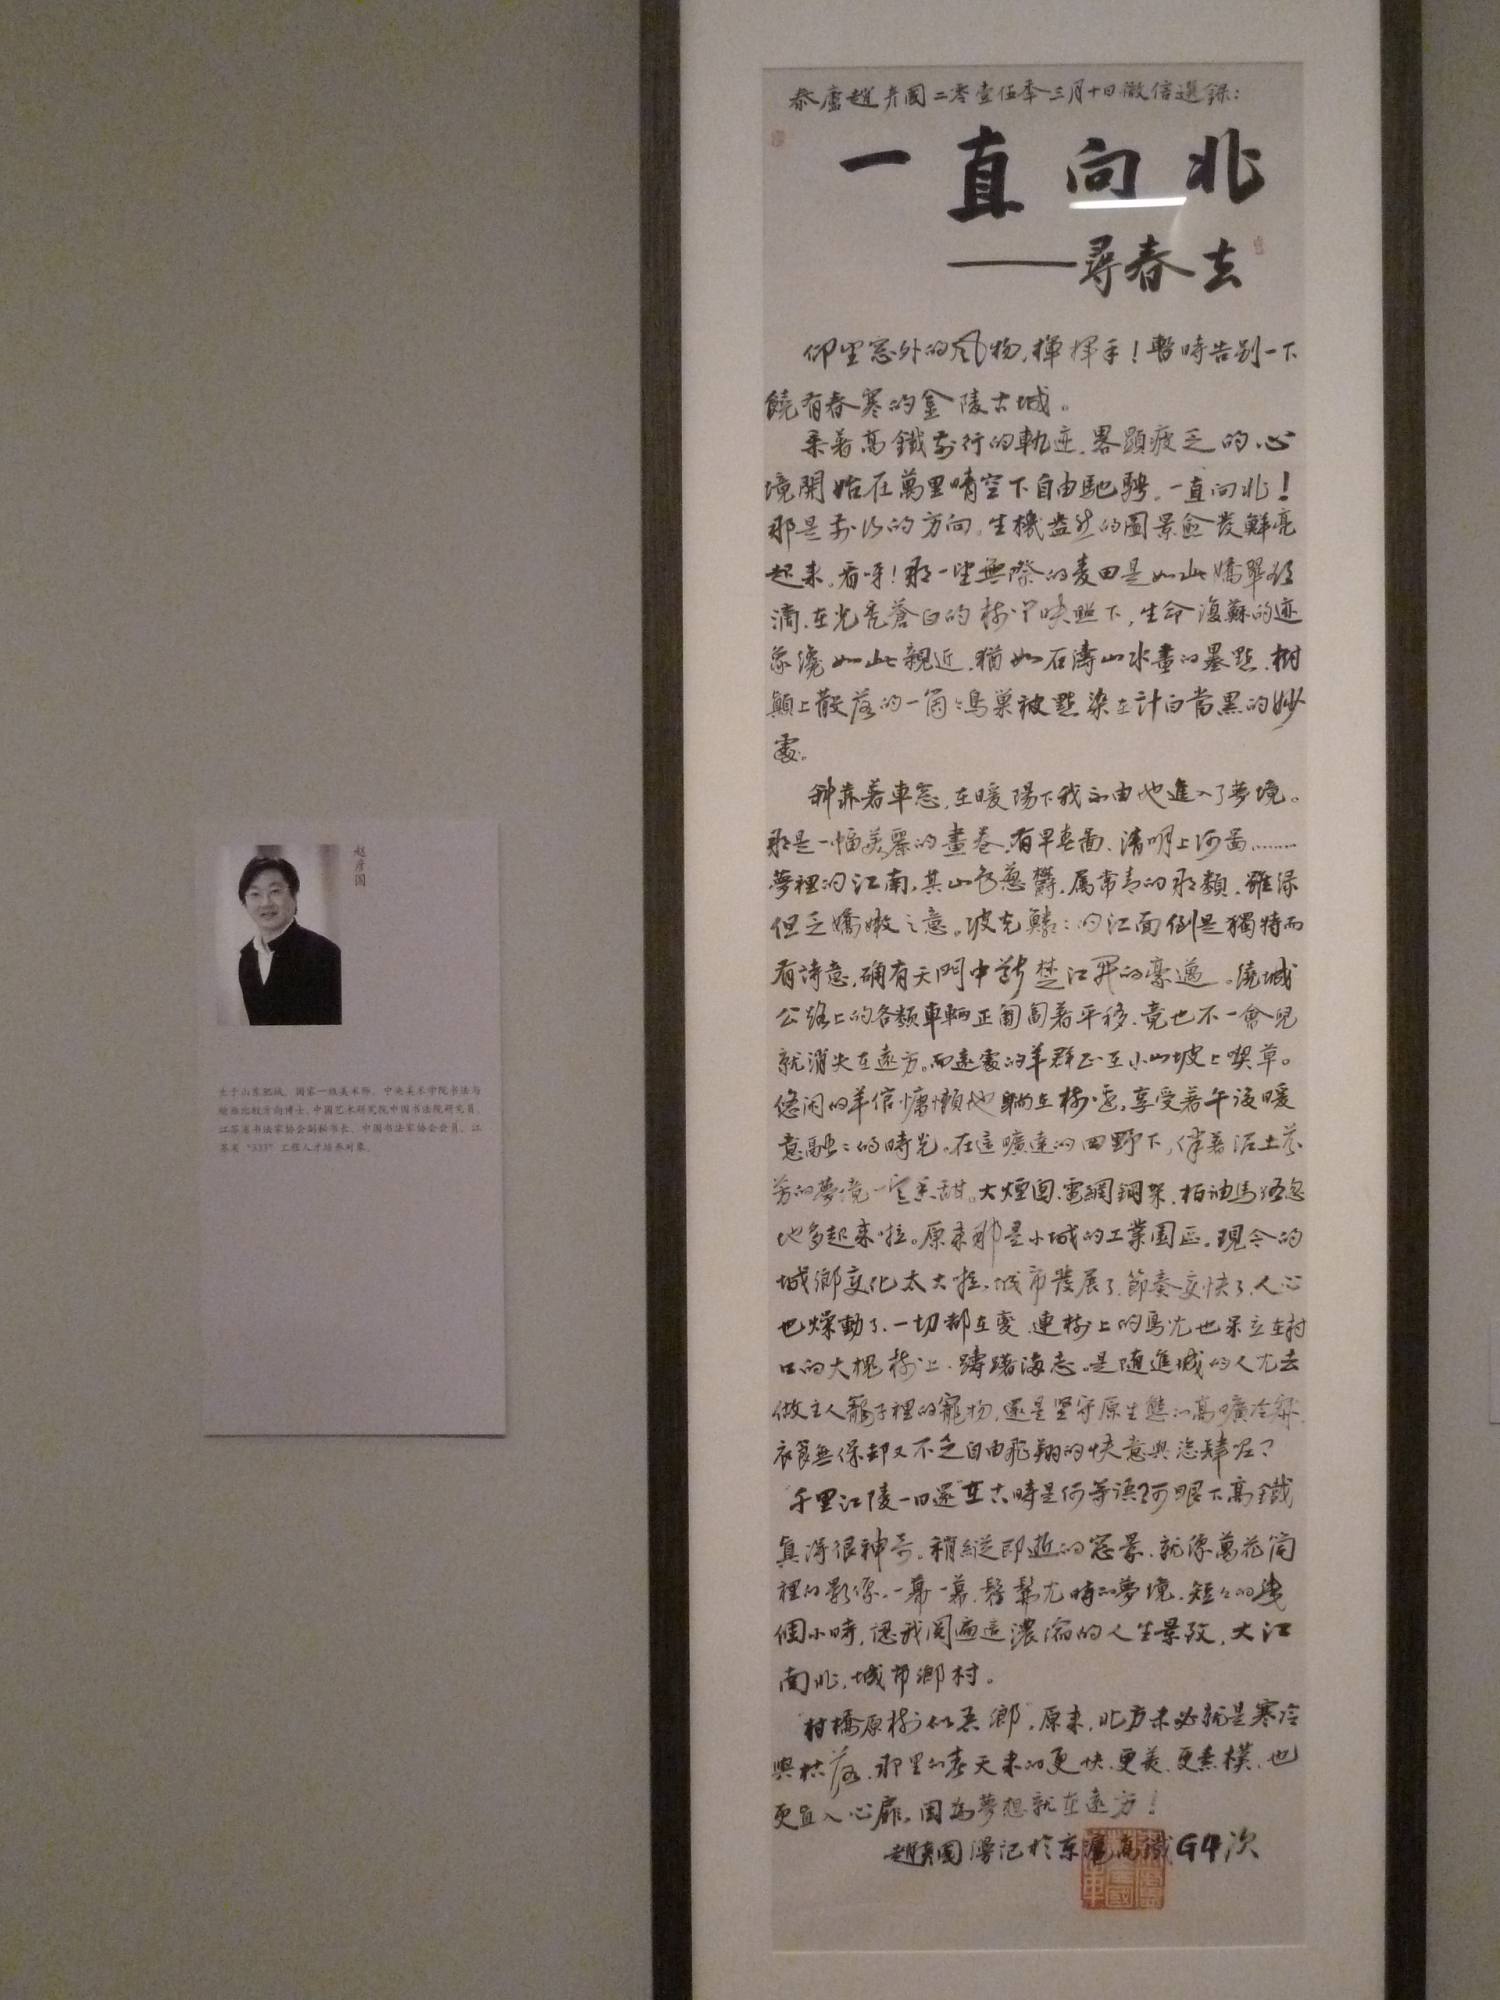 赵彦国
生于山东肥城。国家一级美术师、中央美术学院书法与
绘画比较方向博士、中国艺术研究院中国书法院研究员、
江苏省书法家协会副秘书长、中国书法家协会会员、江
苏省“333”工程人才培养对象。
泰廬趙彥國二零壹伍年三月十日微信選録：
一直向北
——尋春去
仰望窓外的风物，揮揮手！暫時告别一下
饒有春寒的金陵古城。
乘着高鐵前行的軌迹，畧顯疲乏的心
境開始在萬里晴空下自由馳騁。一直向北！
那是前行的方向。生機盎然的圖景愈发鮮亮
起来。看呀！那一望無際的麦田是如此嬌翠欲
滴，在光秃蒼白的树干映照下，生命復蘇的迹
象纔如此親近，猶如石濤山水畫的墨點，樹
顛上散落的一箇々鳥巢被點染在計白當黑的妙
處。
斜靠着車窓，在暖陽下我不由地進入了夢境。
那是一幅美麗的畫卷，有早春圖、清明上河圖……
夢裡的江南，其山色葱鬱，属常青的那類，雖緑
但乏嬌嫩之意。波光鱗々的江面倒是獨特而
有詩意，确有天門中断楚江開的豪邁。繞城
公路上的各類車輛正匍匐着平移，竟也不一會兒
就消失在遠方。而遠處的羊群正在小山坡上喫草。
悠闲的羊倌慵懶地躺在树边，享受着午後暖
意融々的時光。在這曠達的田野下，伴着泥土芬
芳的夢境一定香甜。大煙囱、電網鋼架、柏油馬路忽
地多起来啦。原来那是小城的工業園區。現今的
城鄉变化太大啦，城市發展了，節奏变快了，人心
也燥動了，一切都在变，連树上的鳥儿也呆立在村
口的大槐树上，躊躇滿志。是随進城的人儿去
做主人籠子裡的寵物，还是坚守原生態的高曠冷寂，
衣食無保却又不乏自由飛翔的快意與恣肆呢？
“千里江陵一日還”在古時是何等誤了，可眼下高鐵
真得很神奇。稍縱即逝的窓景，就像萬花筒
裡的影像，一幕一幕，髣髴儿時的夢境，短々的幾
個小時，讓我閲遍這濃縮的人生景致，大江
南北，城市鄉村。
“村橋原树似吾鄉”，原来，北方未必就是寒冷
與枯落，那里的春天来的更快、更美、更素樸，也
更直入心扉，因為夢想就在遠方！
趙彥國漫記於京滬高鐵G4次